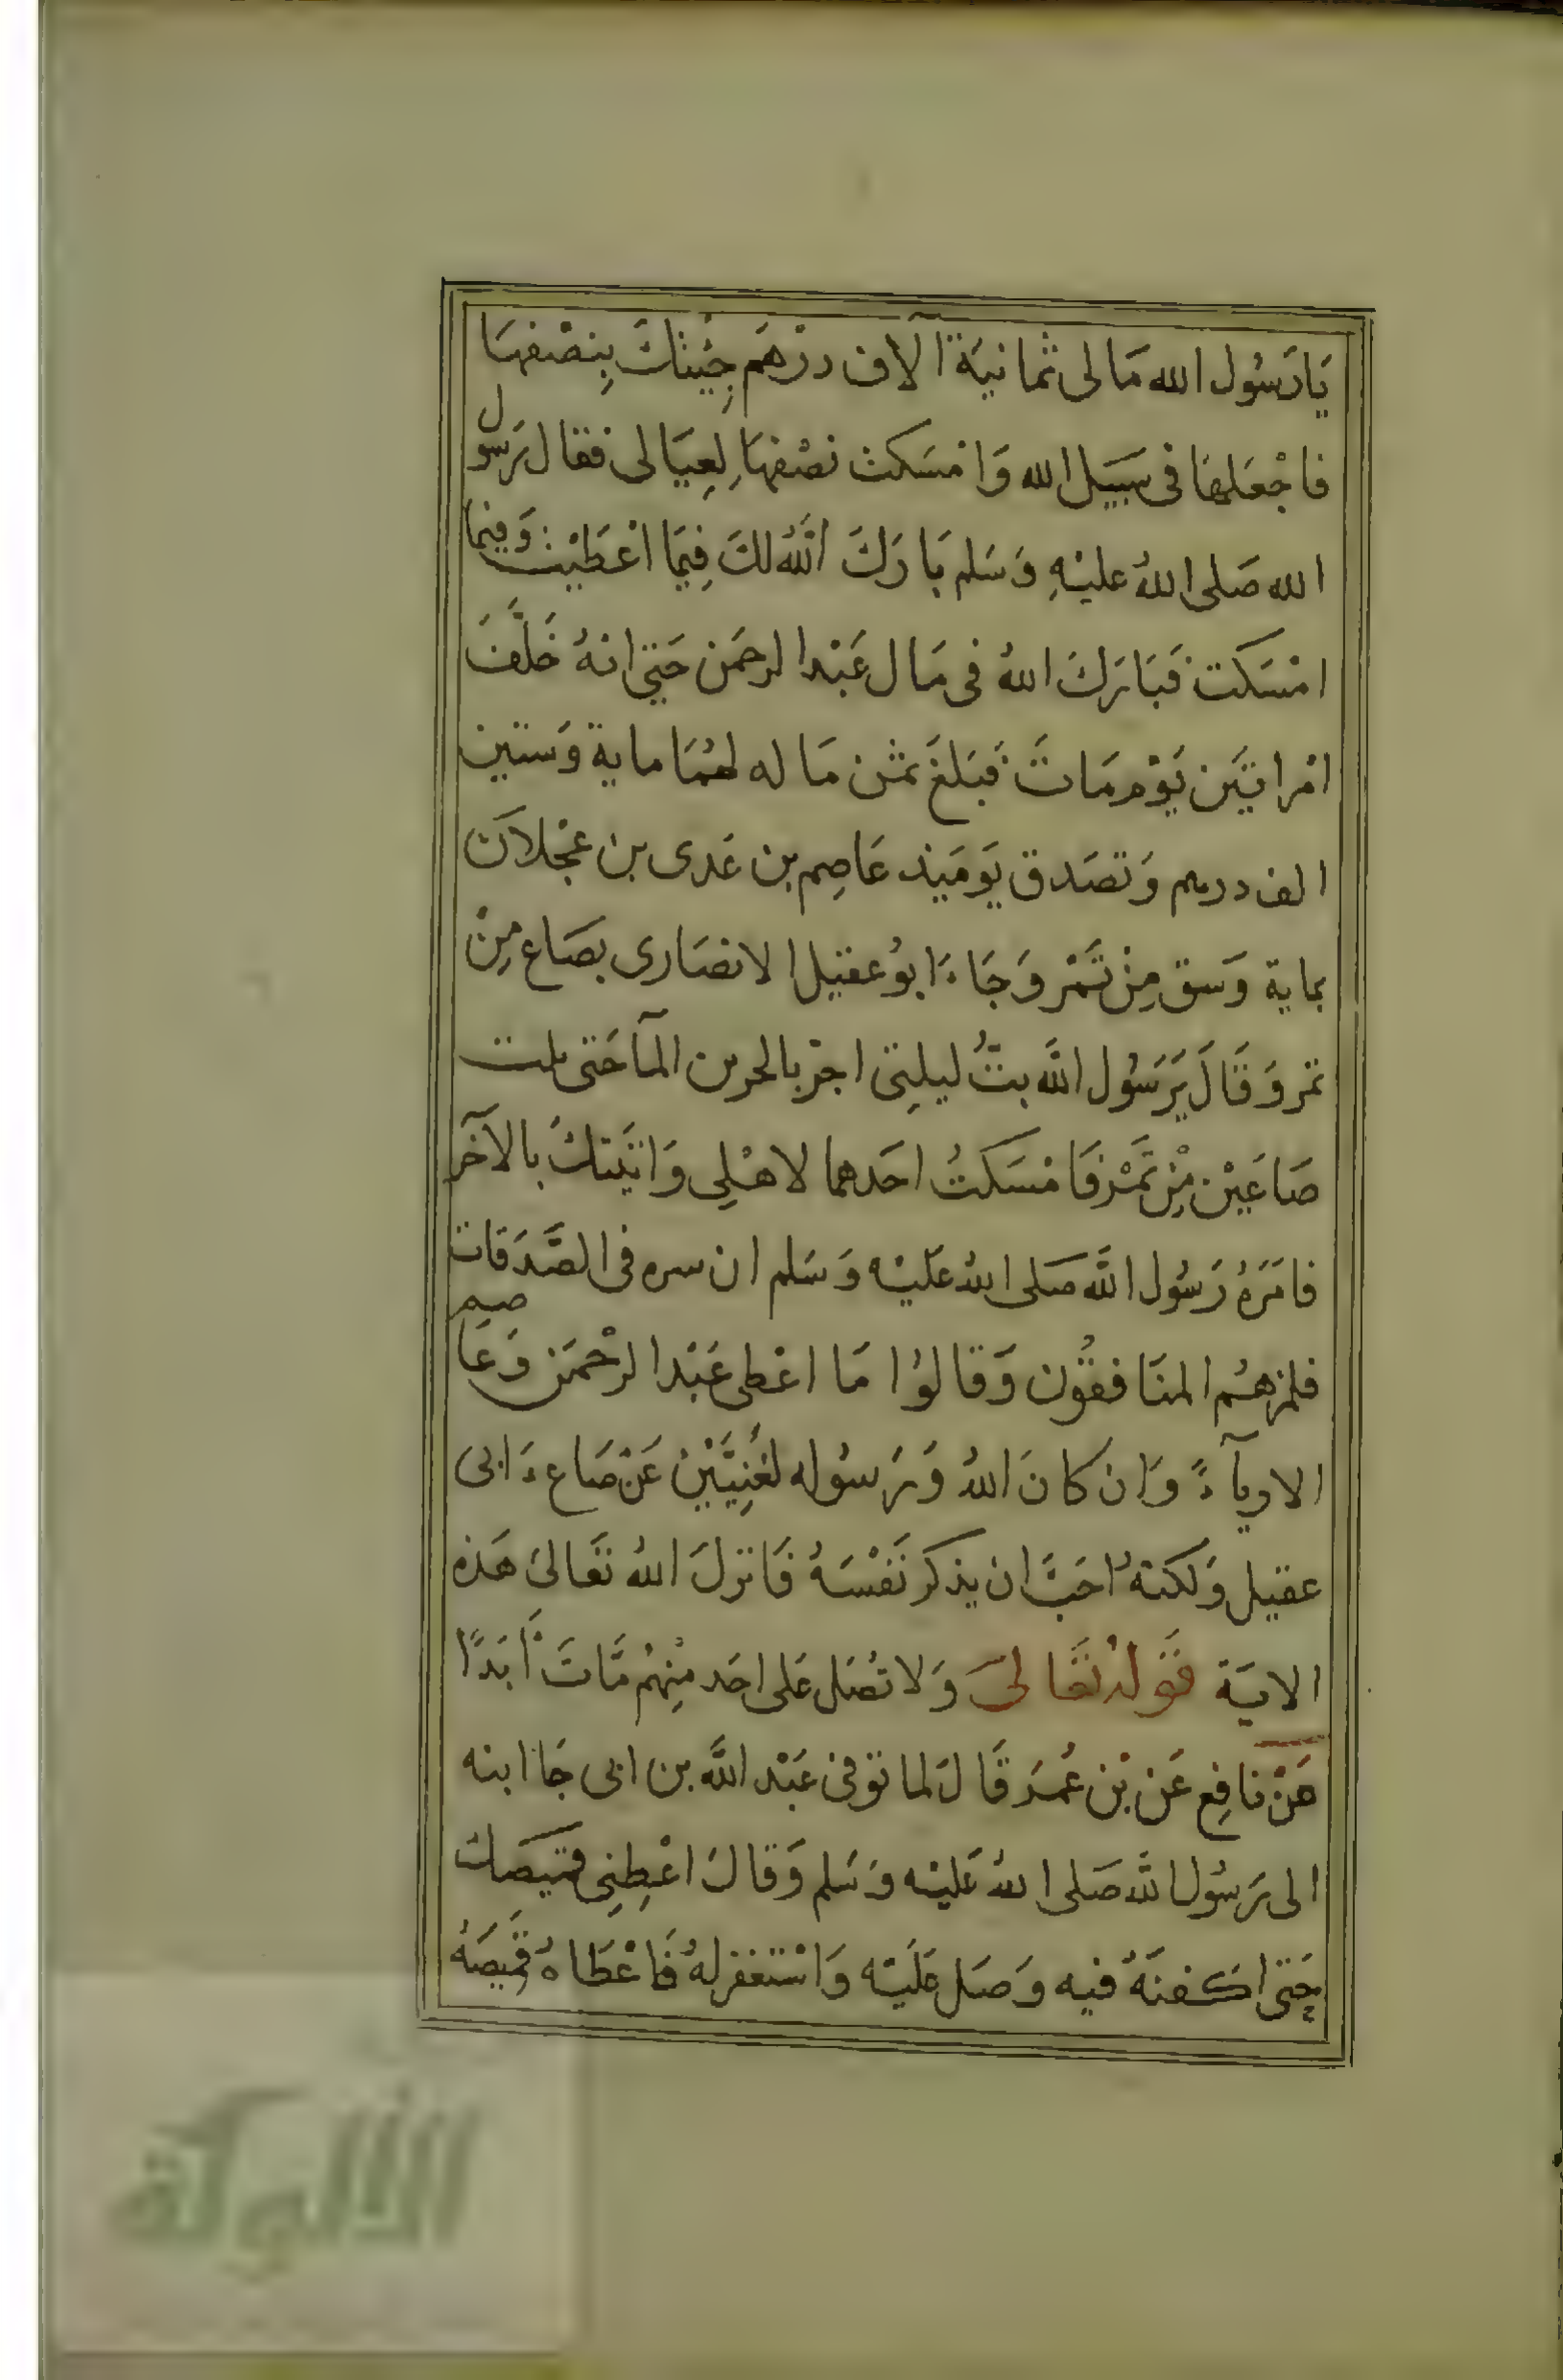 يَا رَسُول الله مَا لى ثمانيَة آلاف درْهَم جِئيتكَ بِنصْفهَا
فاجْعَلهَا فى سَبَيل الله وَامْسَكت نصْفهَا لِعِيَالى فقال رَسول
الله صَلى اللهُ عليْهِ وَسَلم بَارَكَ اللهُ لكَ فِيمَا اعْطَيْت وَفيما
امْسَكت فَبَارَكَ اللهُ فى مَال عَبْد الرحمَن حَتي انهُ خَلَّفَ
امْراتيَن يَوْم مَاتَ فَبَلغَ ثمْن مَاله لهُمَا ماية وَستين
الف درهم وَتصَدق يَومَيذ عَاصِم بن عَدى بن عجْلاَن
بماية وَسق مِنْ تَمْر وَجَاءَ ابوُ عقيل الانصَارى بصَاع مِنْ
تمر وَقَالَ يَرَسُول الله بتُّ ليلِتى اجرْ بالحرير المآ حَتى نلت
صَاعَيْن مِنْ تَمْر فَامْسَكتُ احَدهما لاهْلِى وَاتيَتكَ بالآخَر
فامَرَهُ رَسُول اللَّه صَلى اللهُ عَليْه وَسَلم ان سره فى الصَّدَقات
فلمزهُم المنَافقوُن وَقالوُا مَا اعْطى عَبْد الرحْمَن وَعَاصم
الا ريآءً وَان كانَ اللهُ وَرَسوُله لغُنِيَّيْن عَنْ صَاع ابى
عقيل وَلكنهُ احَبَّ ان يذكر نَفْسَهُ فَانزلَ اللهُ تَعَالىَ هَذه
الايَة قَوَلهُ تَعَالىَ وَلا تُصَل عَلى احَد مِنهُم مَّاتَ أَبَدًا
عَنْ نافِع عَن بْن عُمَرَ قَالَ لما توفى عَبْد اللَّه بن ابى جَا ابنه
الى رَسُول اللَّه صَلى اللهُ عَليْه وَسَلم وَقالَ اعْطِنِى قَيَصَك
حَتى اكفنَهُ فيه وَصَل عَلَيْه وَاسْتغفر لهُ فَاعْطَاهُ قَمِيصَهُ
الألوكة